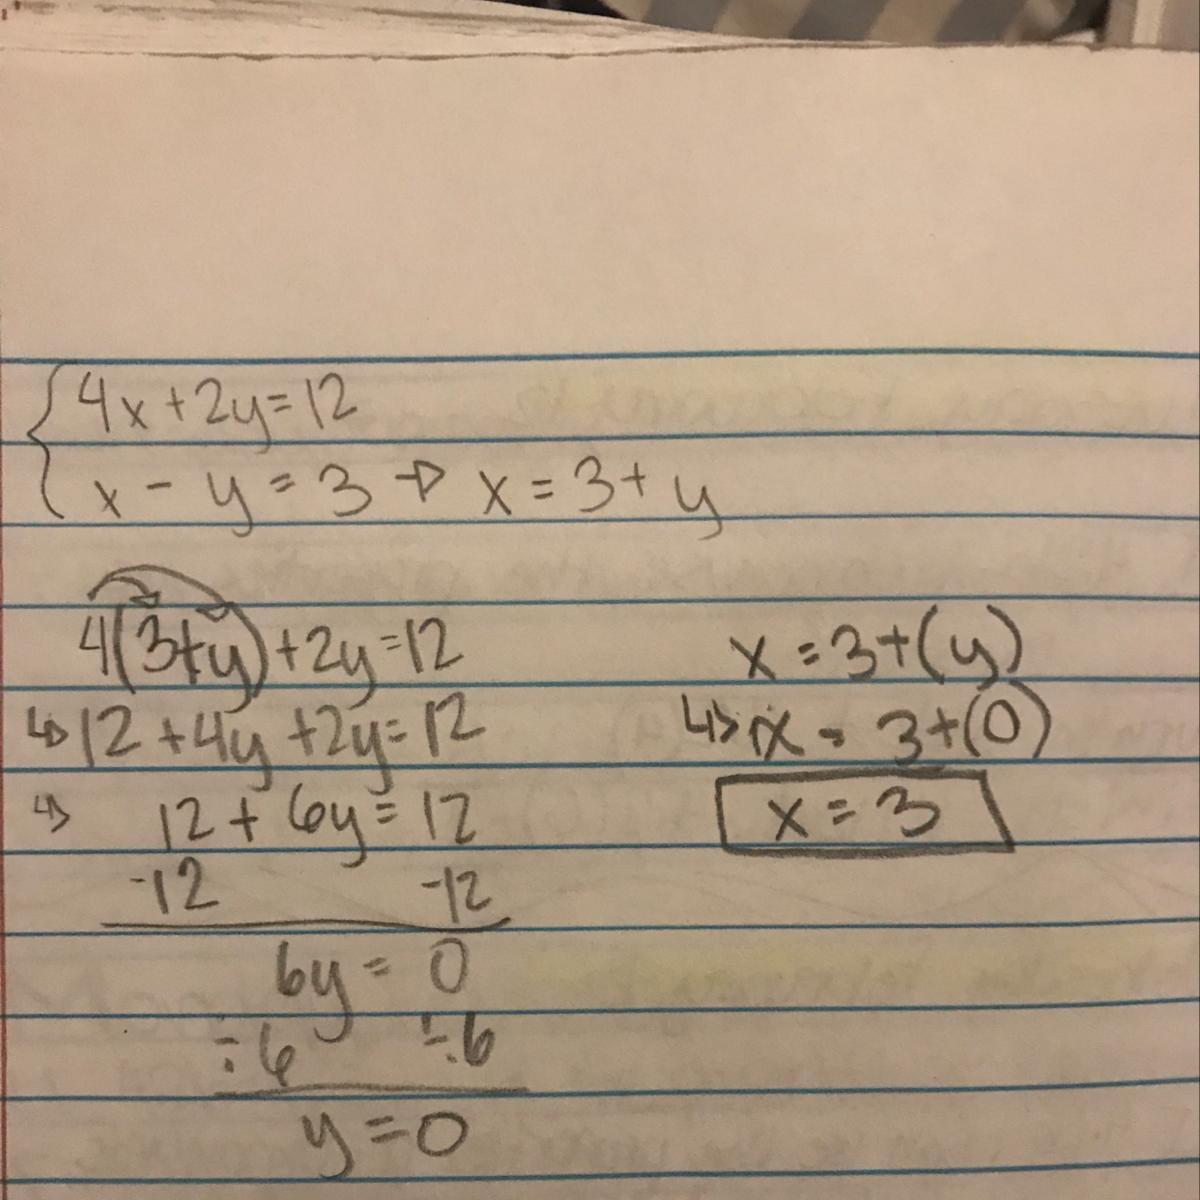 4x+2y=12
x - y = 3 → x = 3 + y
4(3+y)+2y=12
↳ 12 +4y +2y= 12
↳ 12 + 6y = 12
-12 -12
6y = 0
÷6 ÷6
y=0
x = 3+(y)
↳ x = 3+(0)
x = 3